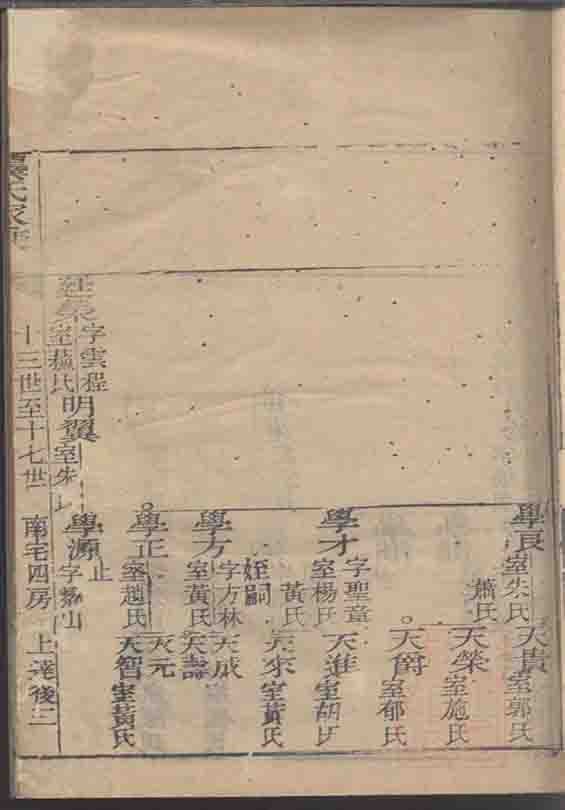 學良 室朱氏 蕭氏
天貴 室郭氏
天榮 室施氏
天爵 室郁氏
學才 字聖章 室楊氏 黃氏
天進 室胡氏
姪嗣
天來 室黃氏
學方 字方林 室黃氏
天成
天壽
學正 室趙氏
天元
天智 室黃氏
廷榮 字雲程 室蘇氏
明翼 室朱氏
學源 字 山 止
氏家
十三世至十七世 南宅四房 上達後二